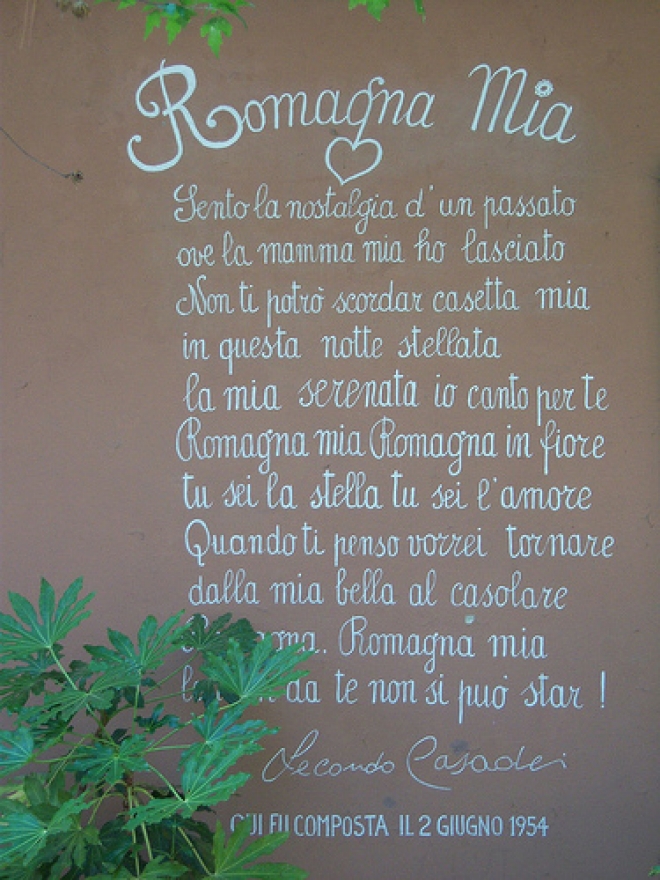 Romagna Mia
Sento la nostalgia d'un passato
ove la mamma mia ho lasciato
Non ti potrò scordar casetta mia
in questa notte stellata
la mia serenata io canto per te
Romagna mia Romagna in fiore
tu sei la stella tu sei l'amore
Quando ti penso vorrei tornare
dalla mia bella al casolare
Romagna. Romagna mia
da te non si può star !
Secondo Casadei
QUI FU COMPOSTA IL 2 GIUGNO 1954